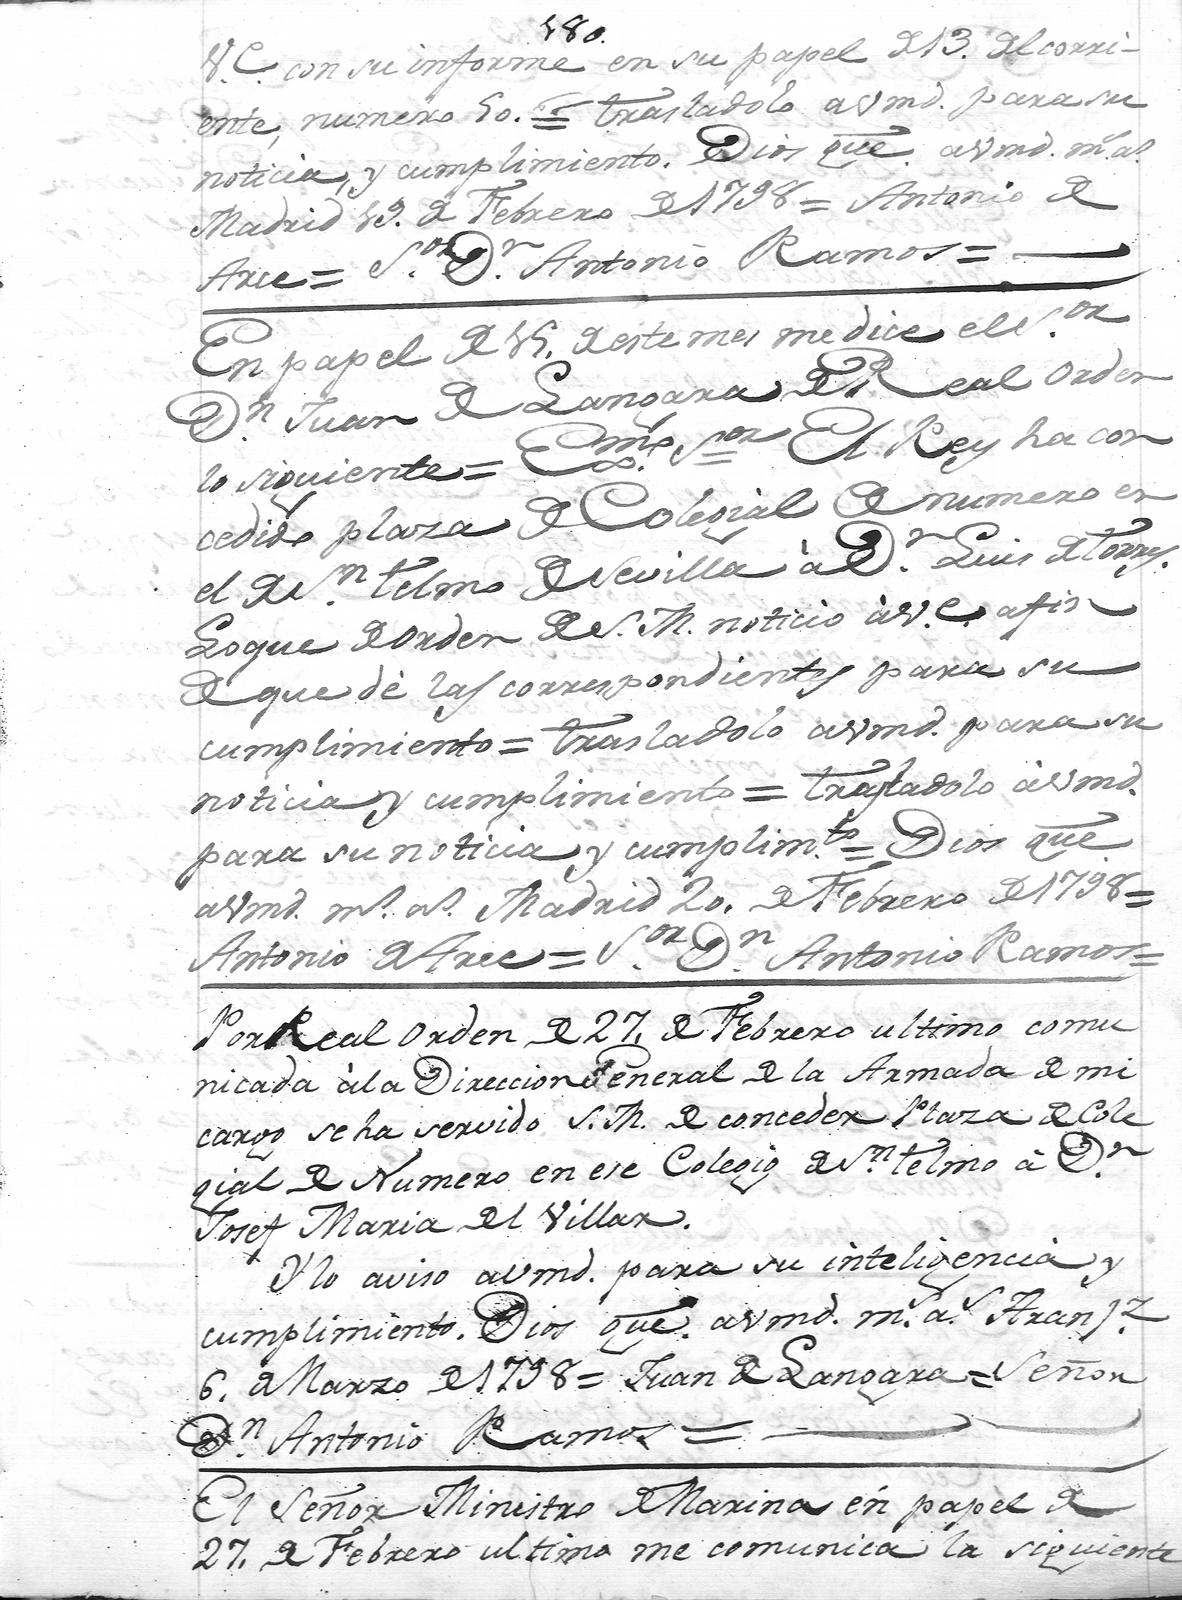 180.
V.E. con su informe en su papel de 13. del corri-
ente, numero 50. = trasladolo a Vmd. para su
noticia, y cumplimiento. Dios gue. a Vmd. ms. as.
Madrid 19. de Febrero de 1798 = Antonio de
Arce = S.or D.n Antonio Ramos =
En papel de 15. de este mes me dice el S.or
D.n Juan de Langara de Real Orden
lo siguiente = Exmo. S.or = El Rey ha con
cedido plaza de Colegial de numero en
el de S.n telmo de Sevilla à D.n Luis de Torres.
Loque de Orden de S.M. noticio à V.E. a fin
de que dè las correspondientes para su
cumplimiento = trasladolo a Vmd. para su
noticia y cumplimiento = trasladolo à Vmd.
para su noticia y cumplim.to = Dios gue.
a Vmd. ms. as. Madrid 20. de Febrero de 1798 =
Antonio de Arce = S.or D.n Antonio Ramos =
Por Real Orden de 27. de Febrero ultimo comu
nicada à la Direccion General de la Armada de mi
cargo se ha servido S.M. de conceder Plaza de Cole
gial de Numero en ese Colegio de S.n telmo à D.n
Josef Maria del Villar.
Y lo aviso a Vmd. para su inteligencia y
cumplimiento. Dios gue. a Vmd. m.s a.s Aranj.z
6. de Marzo de 1798 = Juan de Langara = Señor
D.n Antonio Ramos =
El Señor Ministro de Marina en papel de
27. de Febrero ultimo me comunica la siguiente